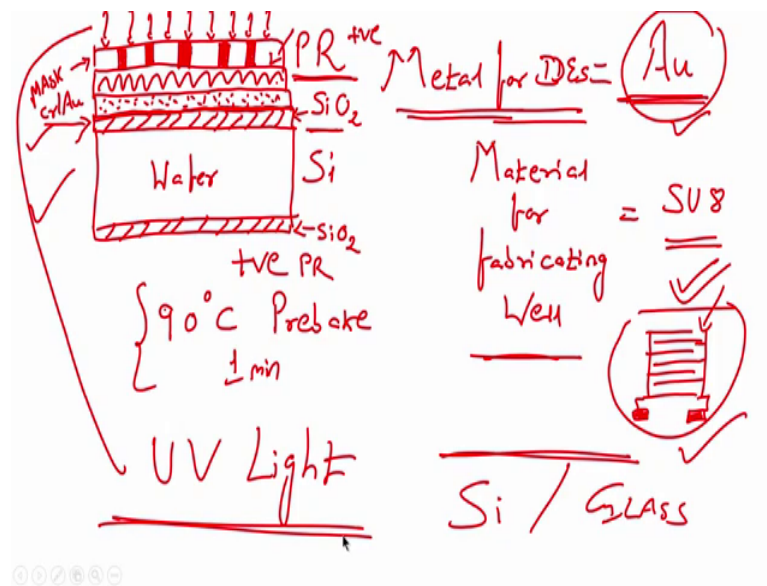 PR +ve
MASK
Cr/Au
SiO2
Wafer
Si
SiO2
+ve PR
90°C Prebake
1 min
UV Light
Metal for IDEs = Au
Material
for
fabricating
Well
= SU8
Si / GLASS